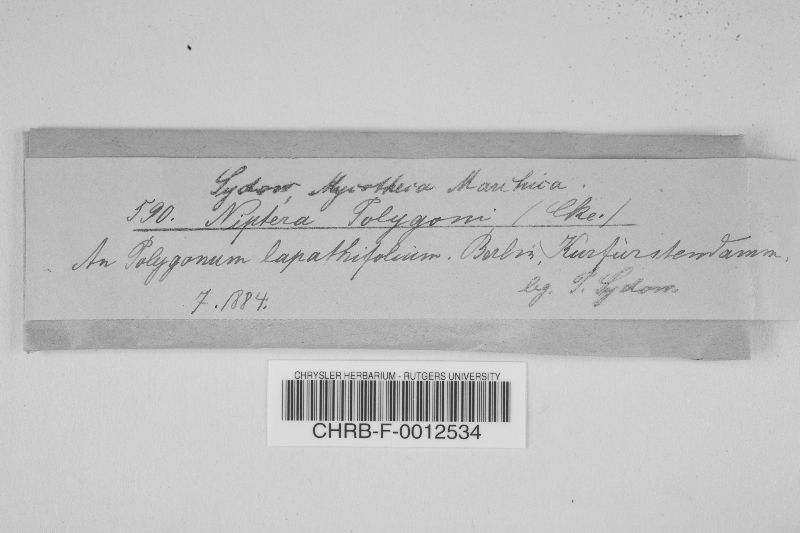 Sydow, Mycotheca Marchica.
590. Niptera Polygoni (Cke.)
An Polygonum lapathifolium. Berlin, Kurfürstendamm.
leg. P. Sydow.
7. 1884.
CHRYSLER HERBARIUM - RUTGERS UNIVERSITY
CHRB-F-0012534